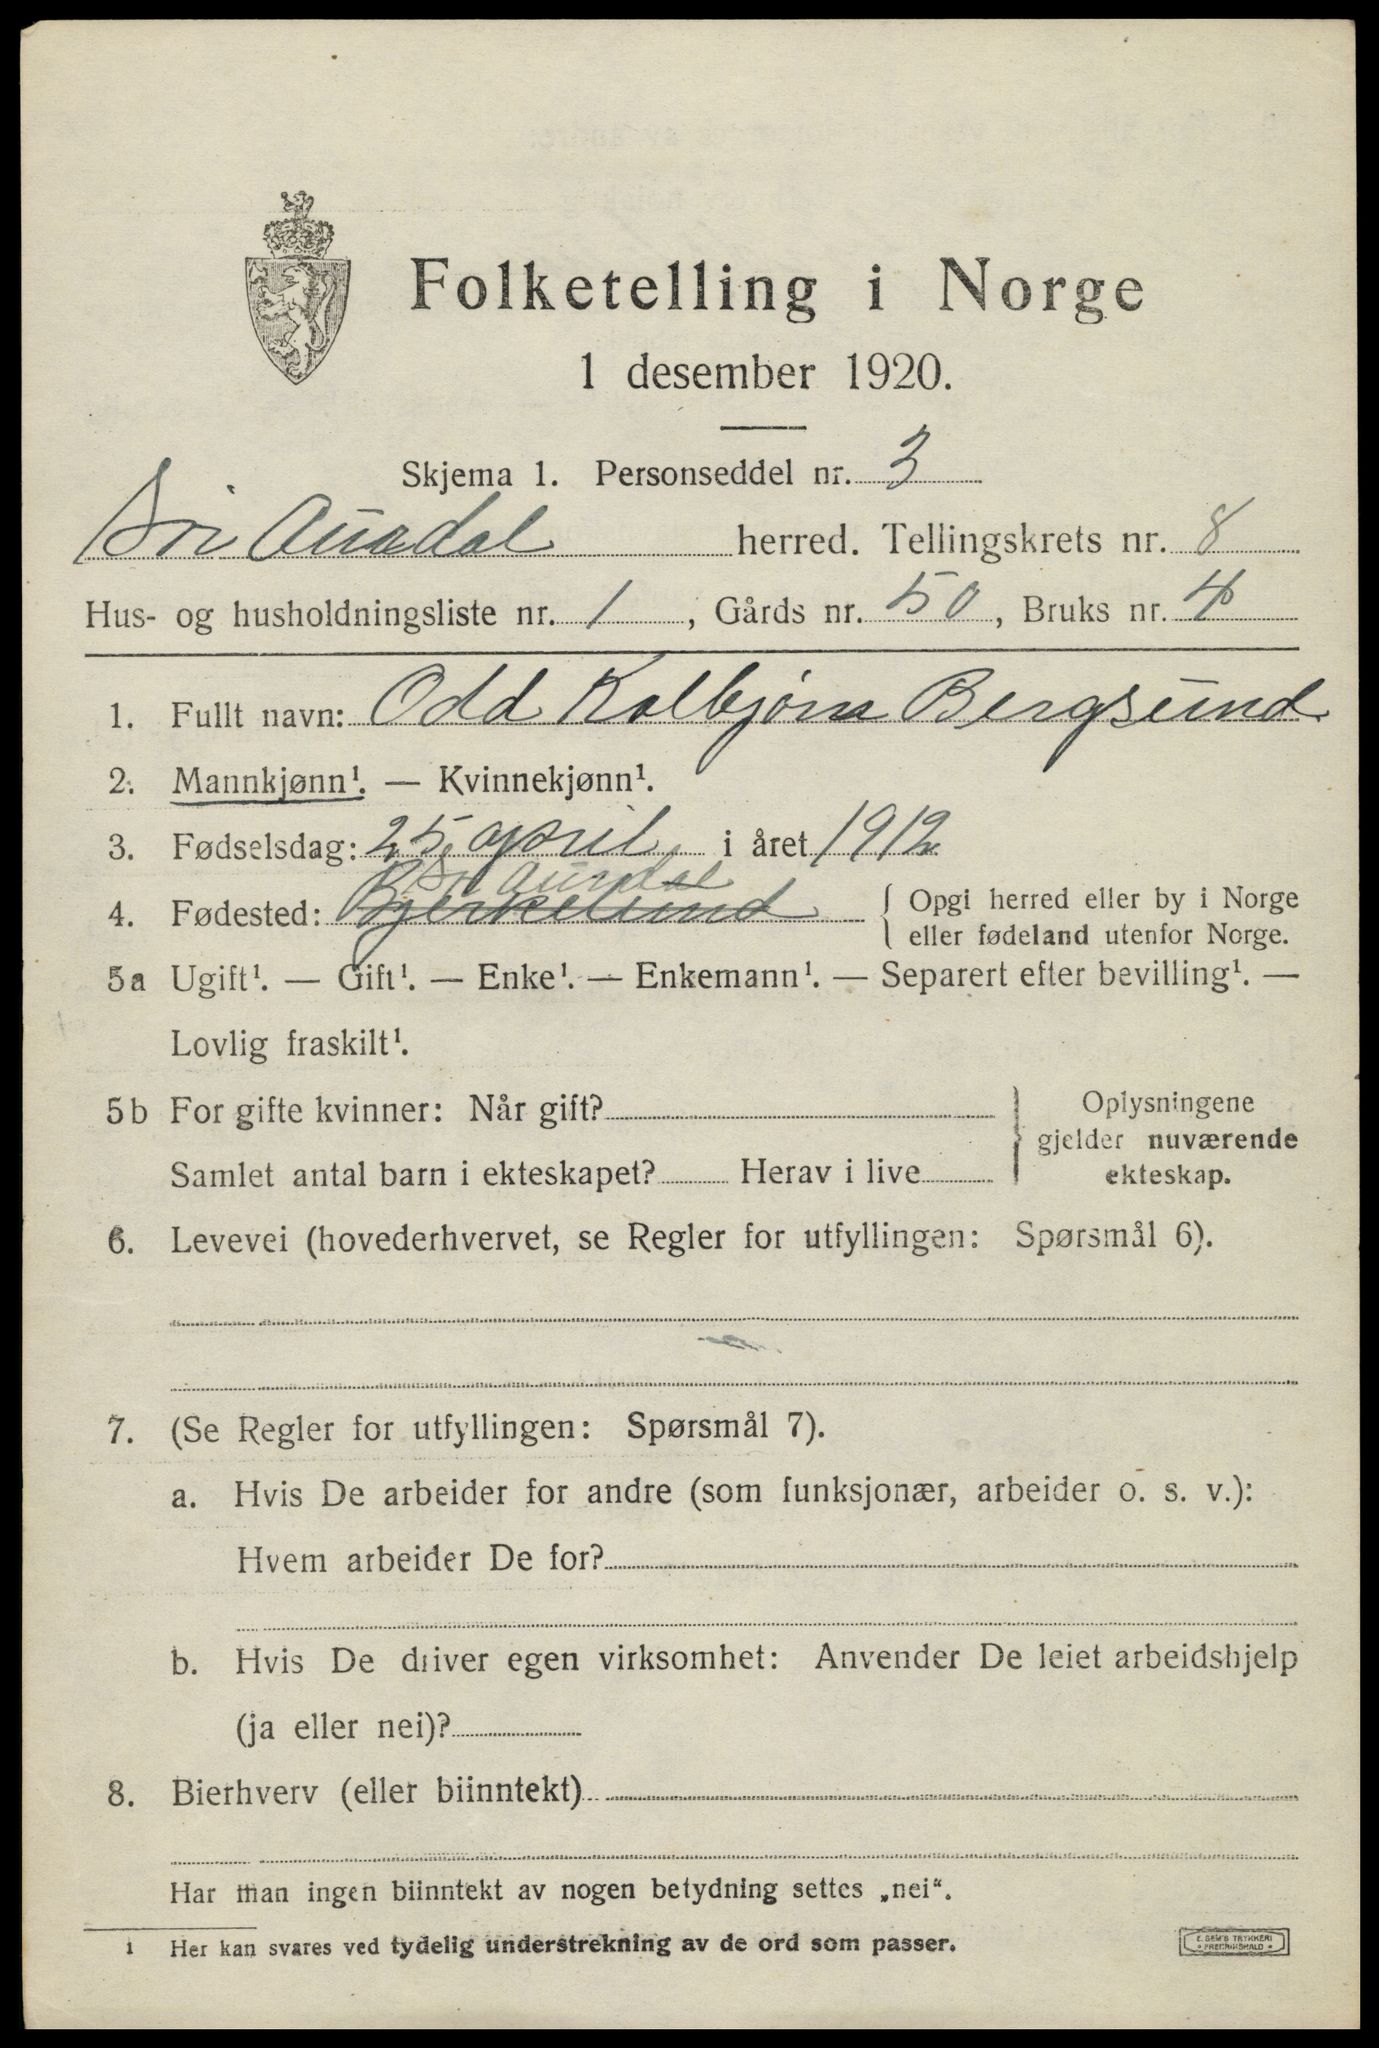 Folketelling i Norge
1 desember 1920.
Skjema 1. Personseddel nr. 3
Søi Aurdal herred. Tellingskrets nr. 8
Hus- og husholdningsliste nr. 1, Gårds nr. 50, Bruks nr. 4
1. Fullt navn: Odd Kolbjörn Bergsund
2. Mannkjønn¹. — Kvinnekjønn¹.
3. Fødselsdag: 25. april i året 1912
Søi Aurdal
4. Fødested: Bjerkelund { Opgi herred eller by i Norge
eller fødeland utenfor Norge.
5a Ugift¹. — Gift¹. — Enke¹. — Enkemann¹. — Separert efter bevilling¹. —
Lovlig fraskilt¹.
5b For gifte kvinner: Når gift? } Oplysningene
gjelder nuværende
Samlet antal barn i ekteskapet? Herav i live ekteskap.
6. Levevei (hovederhvervet, se Regler for utfyllingen: Spørsmål 6).
7. (Se Regler for utfyllingen: Spørsmål 7).
a. Hvis De arbeider for andre (som funksjonær, arbeider o. s. v.):
Hvem arbeider De for?
b. Hvis De driver egen virksomhet: Anvender De leiet arbeidshjelp
(ja eller nei)?
8. Bierhverv (eller biinntekt)
Har man ingen biinntekt av nogen betydning settes „nei“.
1 Her kan svares ved tydelig understrekning av de ord som passer.
E. SEM'S TRYKKERI
* FREDRIKSHALD *